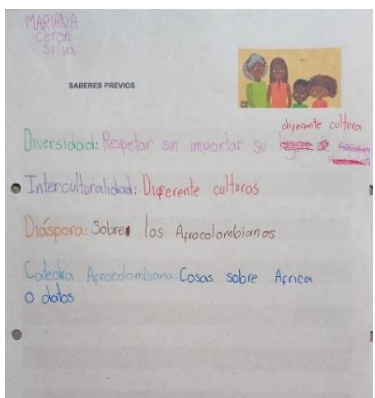 MARIANA
Ceron
Silva
SABERES PREVIOS
diferente cultura
Diversidad: Respetar sin importar su
Interculturalidad: Diferente culturas
Diáspora: Sobre los Afrocolombianos
Catedra Afrocolombiana: Cosas sobre Africa
o datos